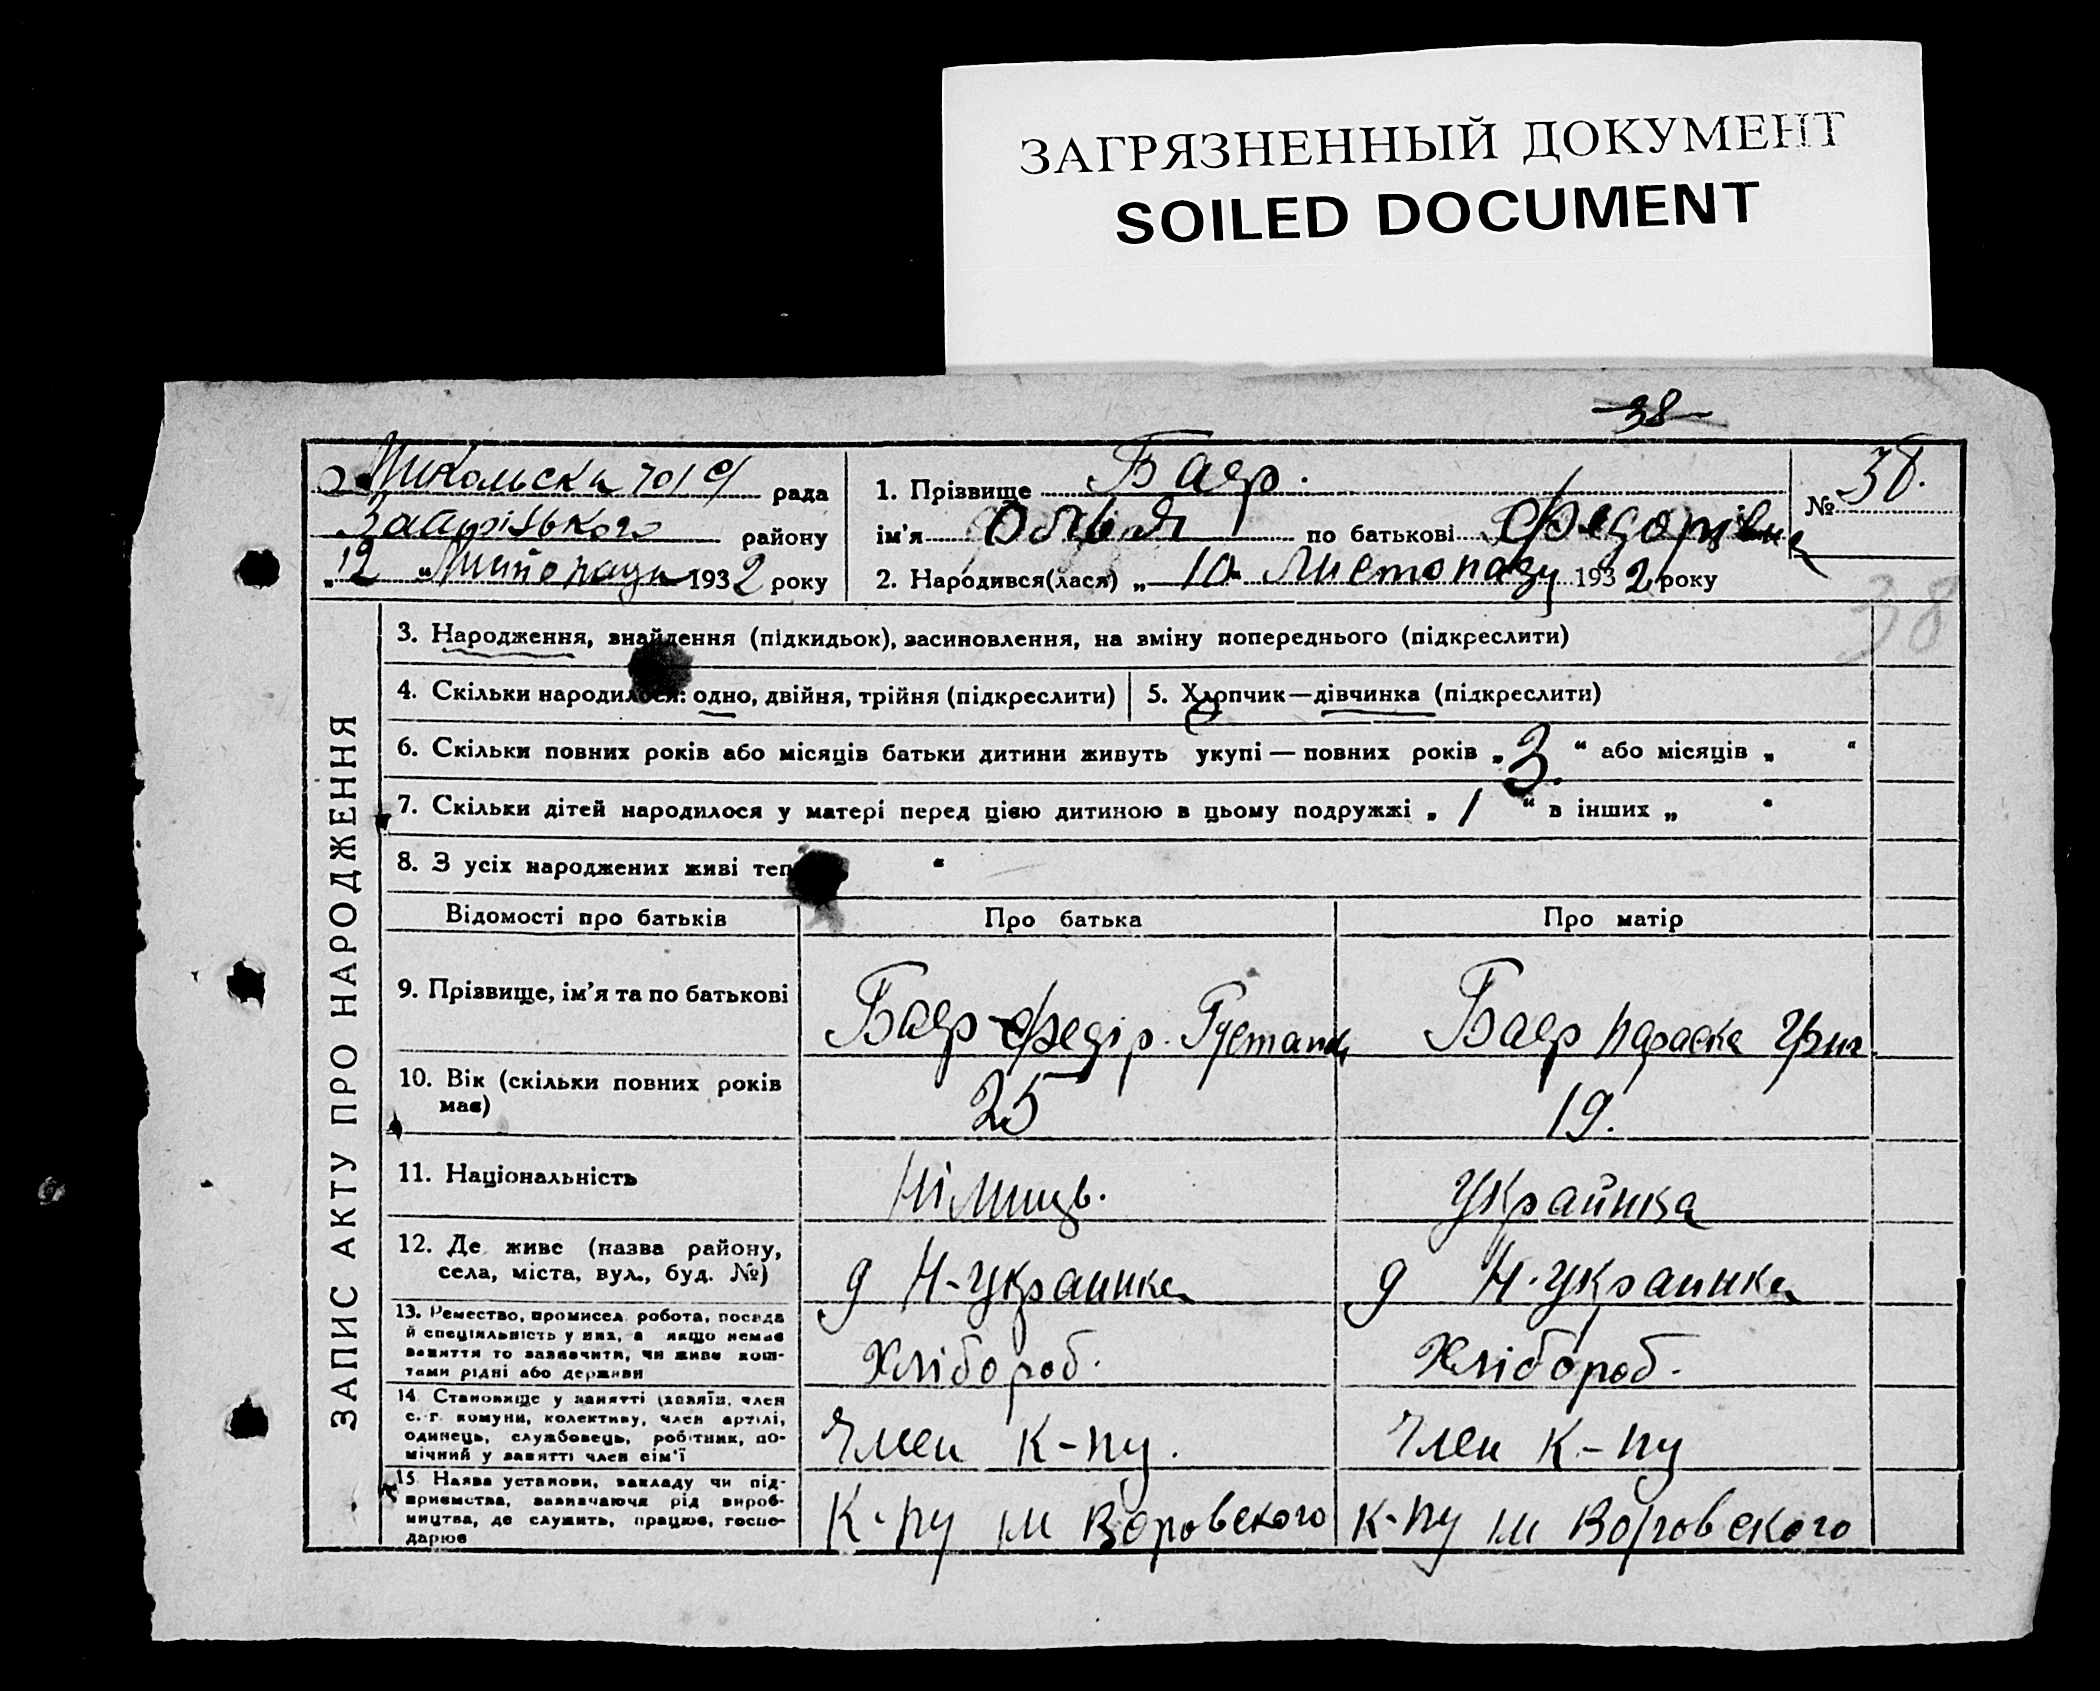 ЗАГРЯЗНЕННЫЙ ДОКУМЕНТ
SOILED DOCUMENT
38
рада
району
„12“ 1932 року
1. Прізвище Баєр.
ім'я Ольга по батькові Федорівна
№ 38.
2. Народився(лася) „10“ Листопаду 1932 року
38
ЗАПИС АКТУ ПРО НАРОДЖЕННЯ
3. Народження, знайдення (підкидьок), засиновлення, на зміну попереднього (підкреслити)
4. Скільки народилося: одно, двійня, трійня (підкреслити)
5. Хлопчик—дівчинка (підкреслити)
6. Скільки повних років або місяців батьки дитини живуть укупі — повних років „3“ або місяців „ “
7. Скільки дітей народилося у матері перед цією дитиною в цьому подружжі „1“ в інших „ “
8. З усіх народжених живі “
Відомості про батьків
Про батька
Про матір
9. Прізвище, ім'я та по батькові
Баєр Федір
Баєр Параска Григ.
10. Вік (скільки повних років
має)
25
19.
11. Національність
Німиць.
Украйинка
12. Де живе (назва району,
села, міста, вул., буд. №)
Н-Украинка
Н. Украинка
13. Ремество, промисел, робота, посада
й спеціяльність у них, а якщо немає
заняття то зазначити, чи живе кош-
тами рідні або держави
Хлібороб.
Хлібороб.
14. Становище у занятті (хазяїн, член
с.-г. комуни, колективу, член артілі,
одинець, службовець, робітник, по-
мічний у занятті член сім'ї
Член К-пу.
Член К-пу
15. Назва установи, закладу чи під-
приємства, зазначаючи рід вироб-
ництва, де служить, працює, госпо-
дарює
К-пу ім Воровского
К-пу ім Воровского